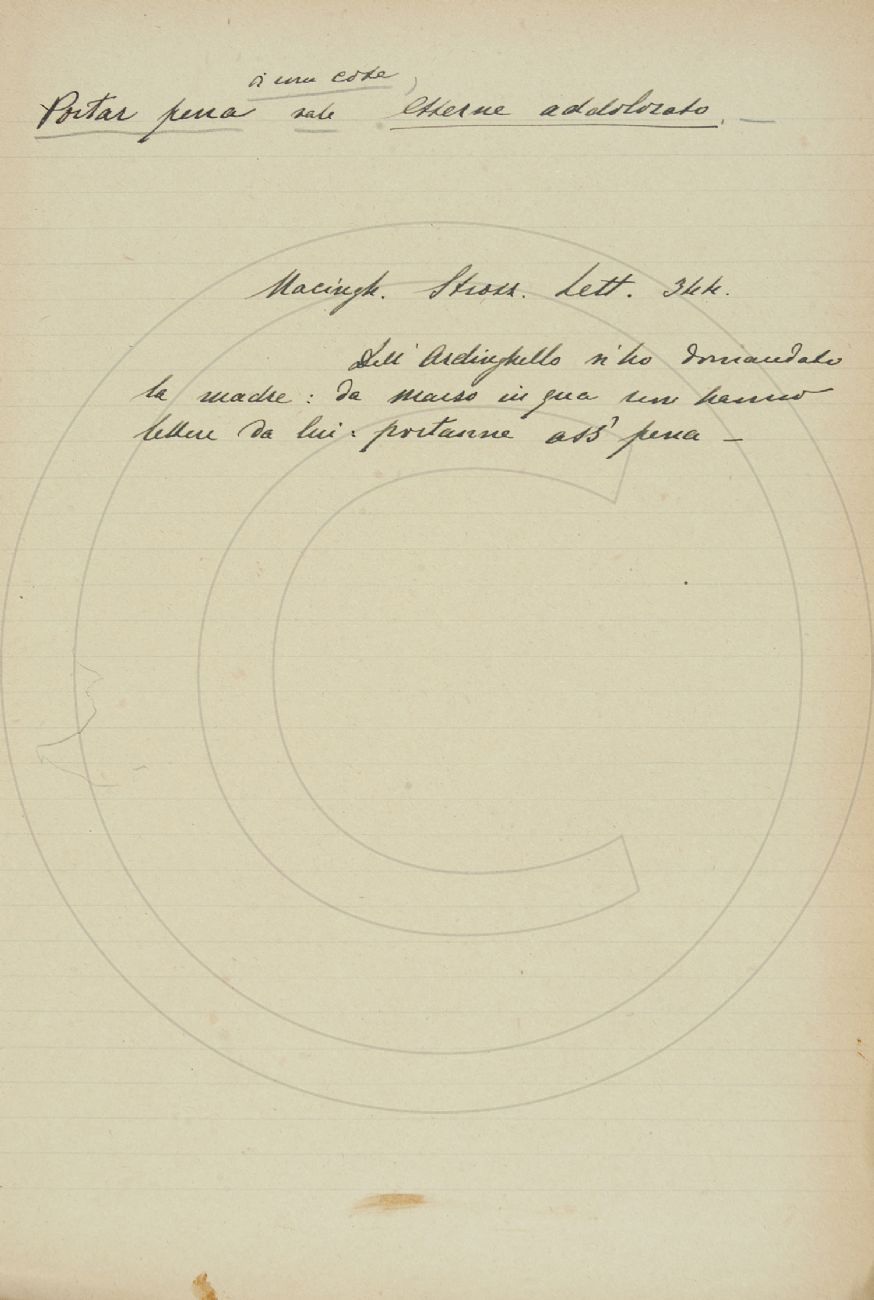 di una cosa,
Portar pena vale Esserne addolorato. —
Macingh. Strozz. Lett. 344.
Dell' Ardinghello n' ho domandato
la madre: da marzo in qua non hanno
lettere da lui: portanne ass' pena —